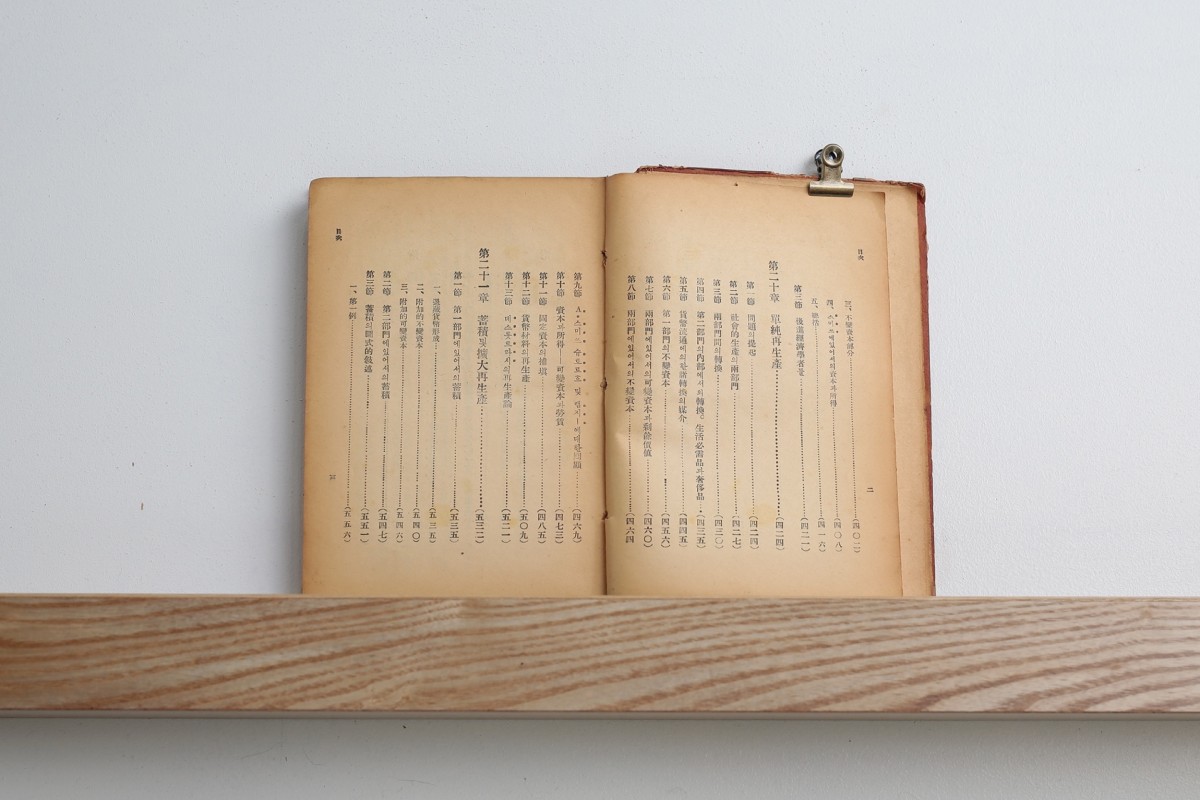 目次
三、不變資本部分……(四〇二)
四、스미드에있어서의資本과所得……(四〇八)
五、總括……(四一六)
第三節 後進經濟學者들……(四二一)
第二十章 單純再生產……(四二四)
第一節 問題의提起……(四二四)
第二節 社會的生產의兩部門……(四二七)
第三節 兩部門間의轉換……(四三〇)
第四節 第二部門의內部에서의轉換。生活必需品과奢侈品……(四三五)
第五節 貨幣流通에의한諸轉換의媒介……(四四五)
第六節 第一部門의不變資本……(四五六)
第七節 兩部門에있어서의可變資本과剩餘價值……(四六〇)
第八節 兩部門에있어서의不變資本……(四六四)
二
目次
第九節 A・스미드 슈토르흐 및 람지—에대한回顧……(四六九)
第十節 資本과所得——可變資本과勞賃……(四七三)
第十一節 固定資本의補塡……(四八五)
第十二節 貨幣材料의再生產……(五〇九)
第十三節 데스튯트・드・트라시의再生產論……(五二一)
第二十一章 蓄積及擴大再生產……(五三二)
第一節 第一部門에있어서의蓄積……(五三五)
一、退藏貨幣形成……(五三五)
二、附加的不變資本……(五四〇)
三、附加的可變資本……(五四六)
第二節 第二部門에있어서의蓄積……(五四七)
第三節 蓄積의圖式的敍述……(五五一)
一、第一例……(五五六)
三